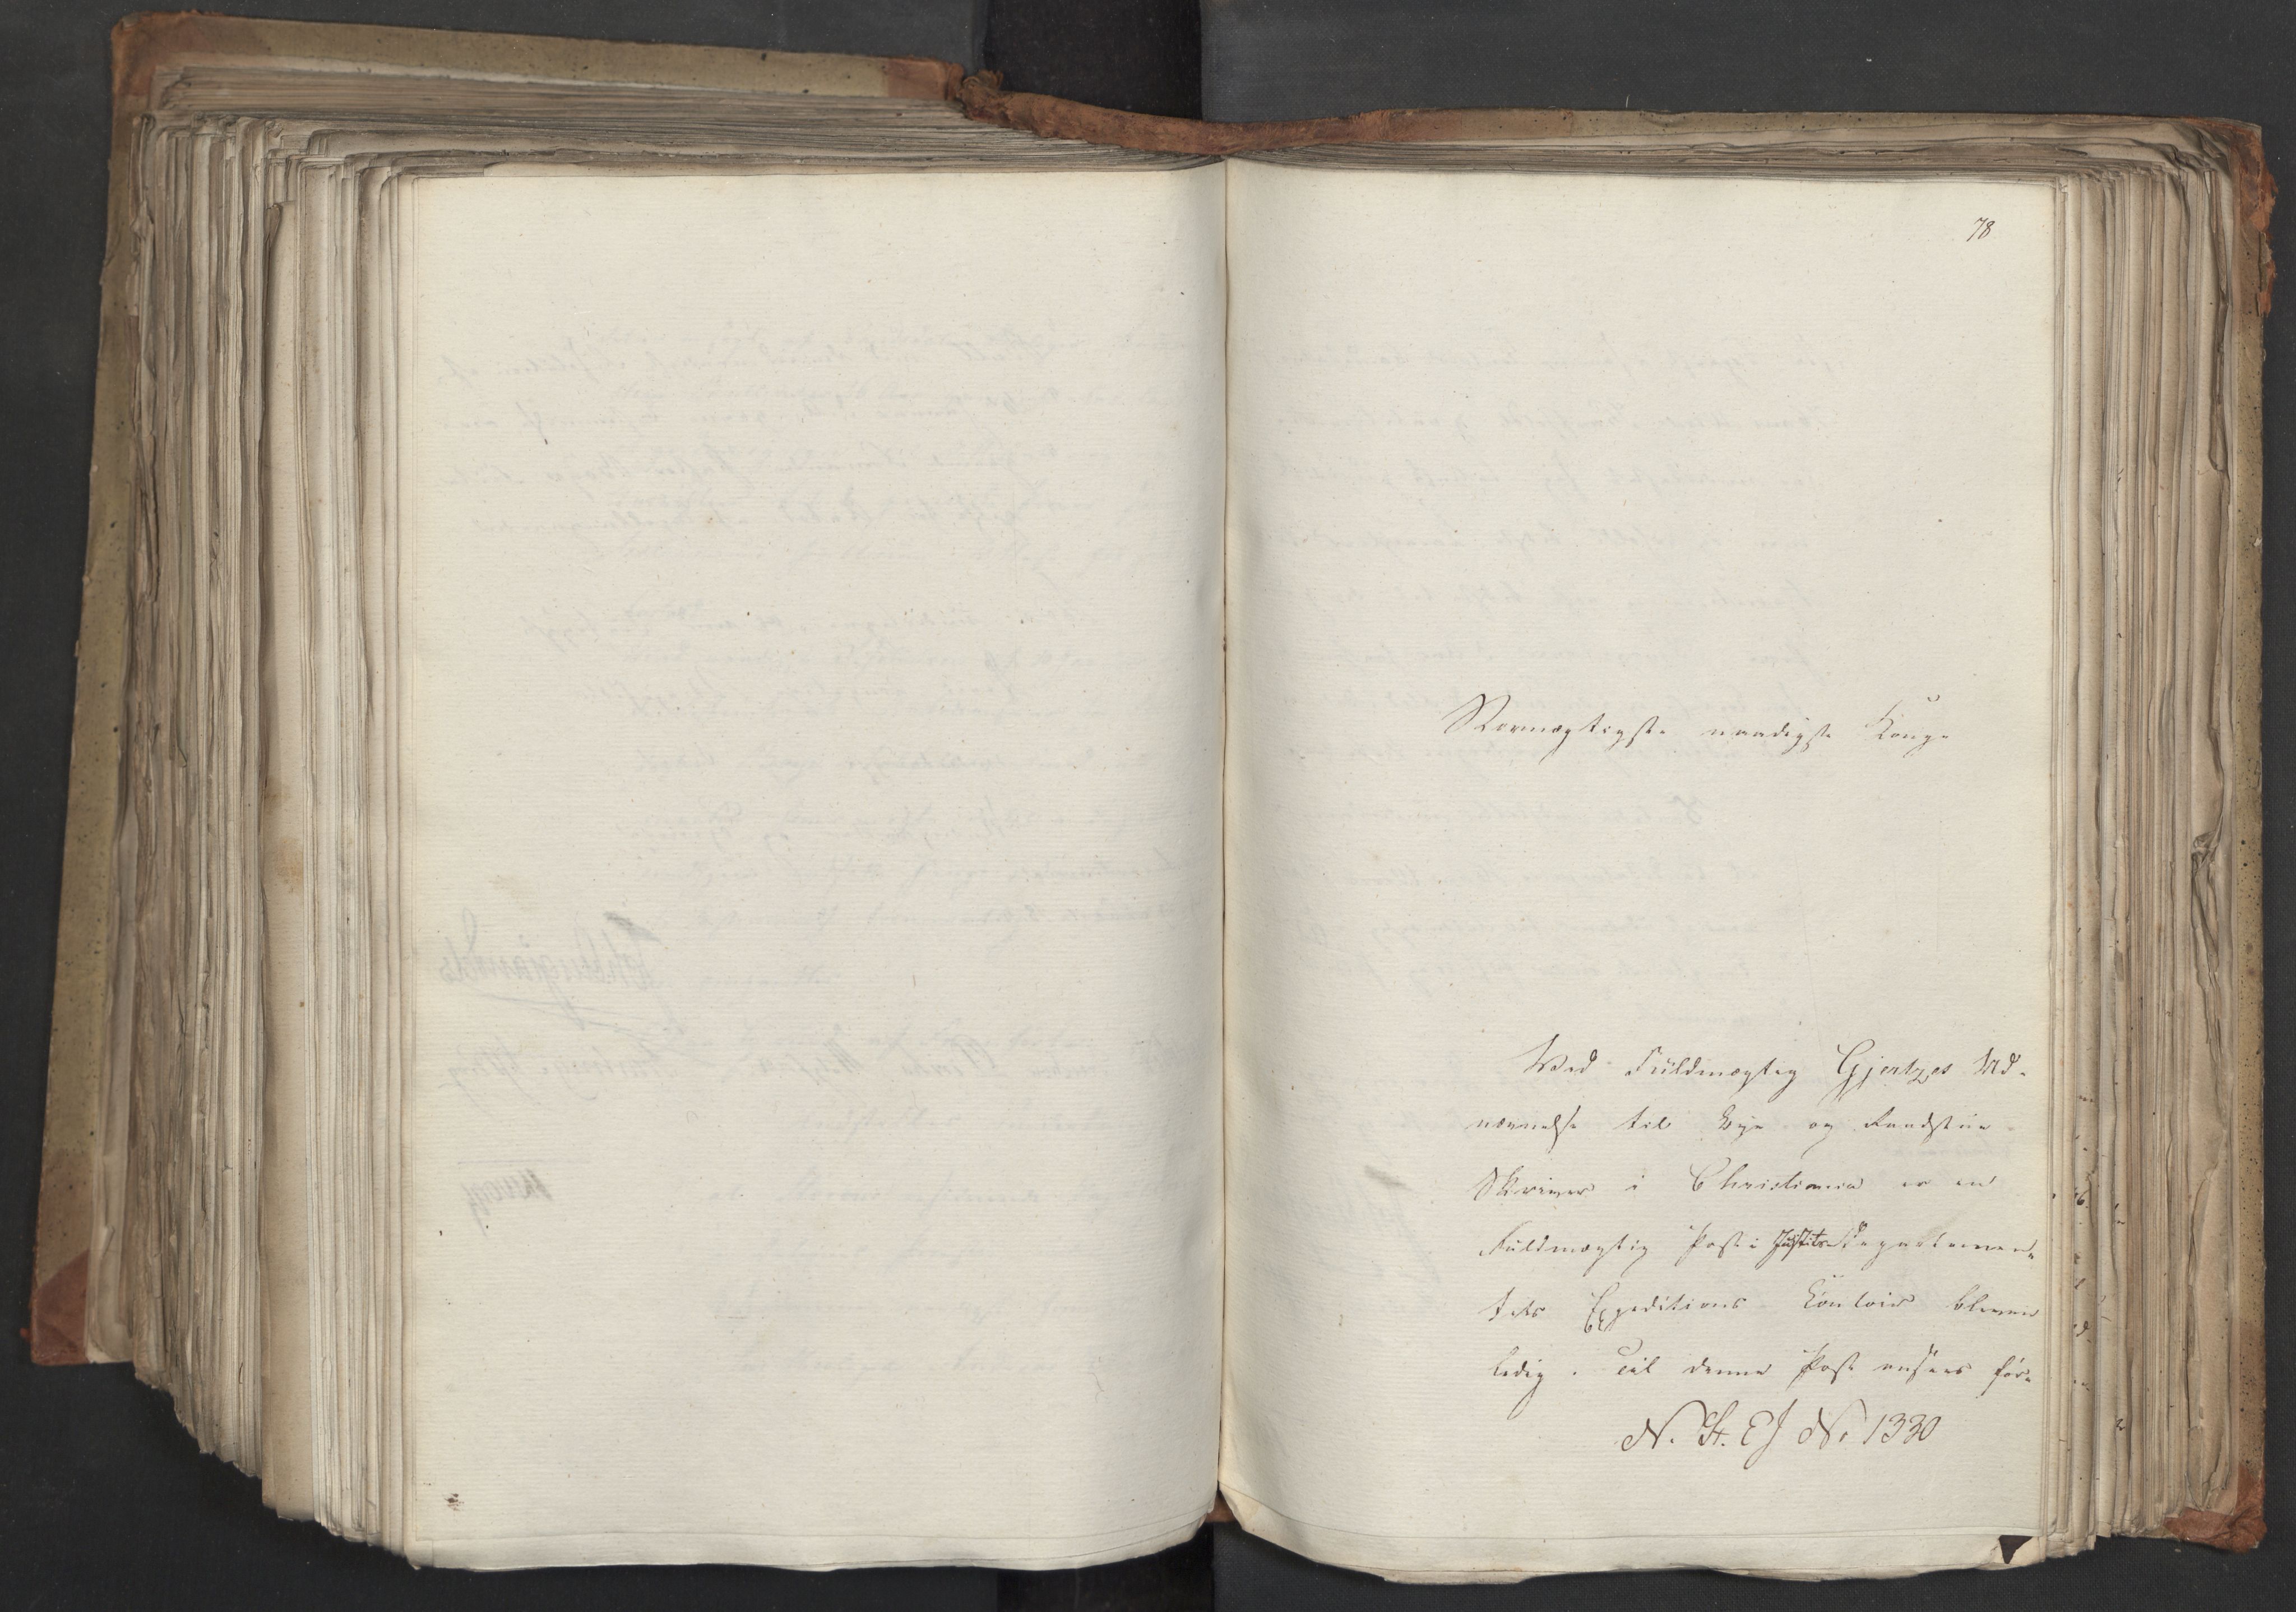 78
Stormægtigste naadigste Konge
Ved Fuldmægtig Gjertzes Ud-
nævnelse til Bye og Raadstue
Skriver i Christiania er en
Fuldmægtig Post i Justits Departemen-
tets Expeditions Contoir bleven
ledig. Til denne Post ansees for-
N. St. E J No 1330